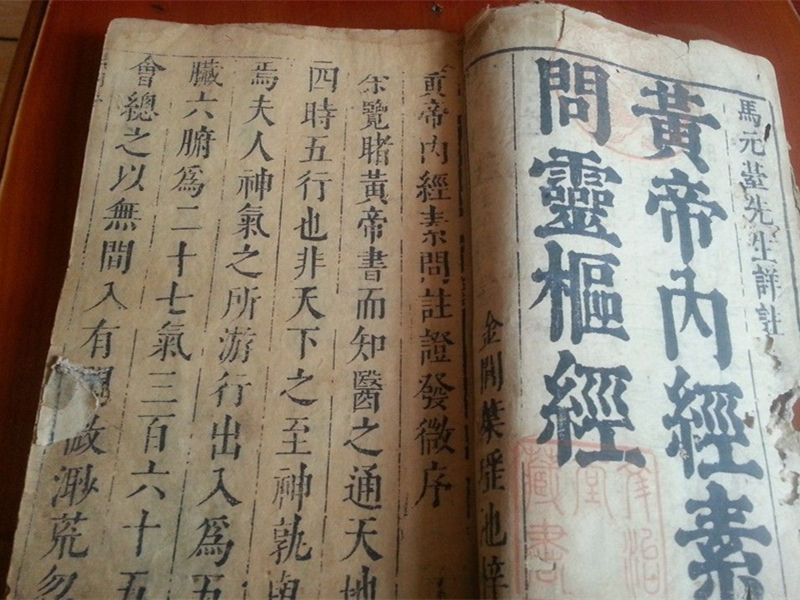 馬元臺先生詳註
黃帝內經素
問靈樞經
金閶葉瑤池梓
黃帝內經素問註證發微序
余覽睹黃帝書而知醫之通天地
四時五行也非天下之至神孰
焉夫人神氣之所游行出入爲五
臟六腑爲二十七氣三百六十五
會總之以無間入有間微渺荒忽
藏書